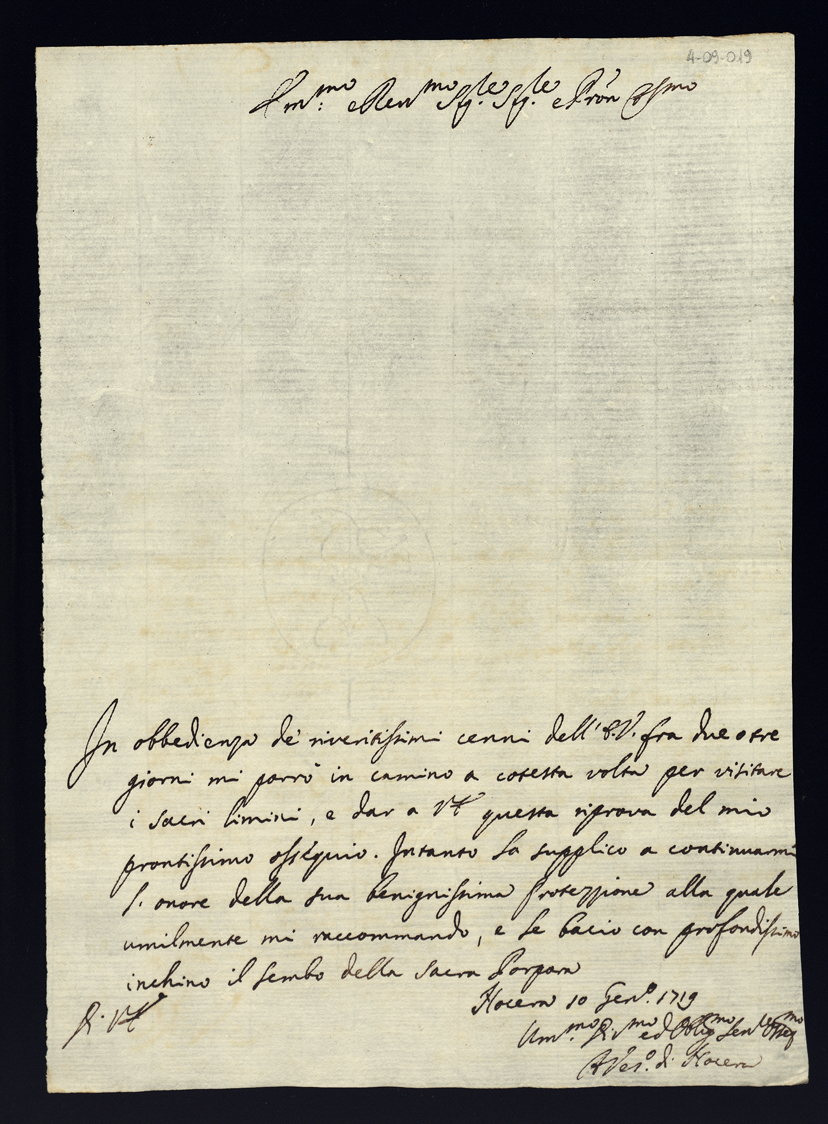 4-09-019
Em.mo e Rev.mo Sig.re Sig.re e Pron Osmo
In obbedienza de' riveritissimi cenni dell'E.V. fra due o tre
giorni mi porrò in camino a cotesta volta per visitare
i sacri limini, e dar a VE questa riprova del mio
prontissimo ossequio. Intanto la supplico a continuarmi
l'onore della sua benignissima Protezzione alla quale
umilmente mi raccommando, e le bacio con profondissimo
inchino il lembo della Sacra Porpora
Di VE
Nocera 10 Gen.o 1719
Um.mo Div.mo ed Oblig.mo Ser.re Osseq.mo
A Ves.o di Nocera